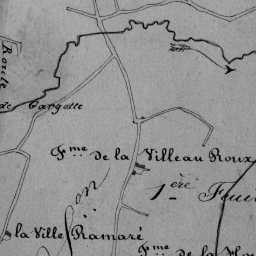 Route
de Gargotte
Fme de la Villeau Roux
1ère Feui
la Ville Ramaré
Fme de la